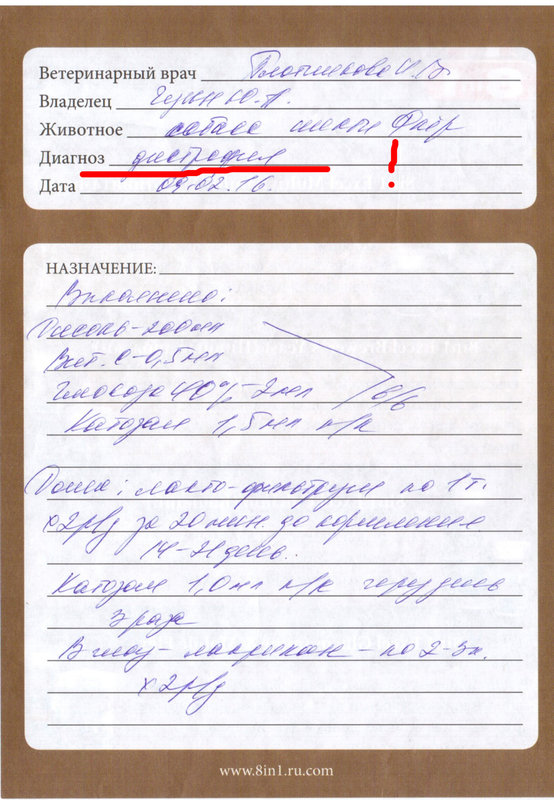 Ветеринарный врач Плотникова И.В.
Владелец Ю.А.
Животное собака Фпёр
Диагноз дистрофия !
Дата 09.02.16.
НАЗНАЧЕНИЕ:
Выполнено:
Дисоль-200мл
Вит. С-0,5мл
Глюкоза 40%-2мл в/в
Катозал 1,5мл п/к
Дома: лакто-фильтрум по 1т.
х2р/д за 20 мин до кормления
14-21 день.
Катозал 1,0мл п/к через день
3 раза
В глаз - лакрикан - по 2-3к.
х2р/д
www.8in1.ru.com